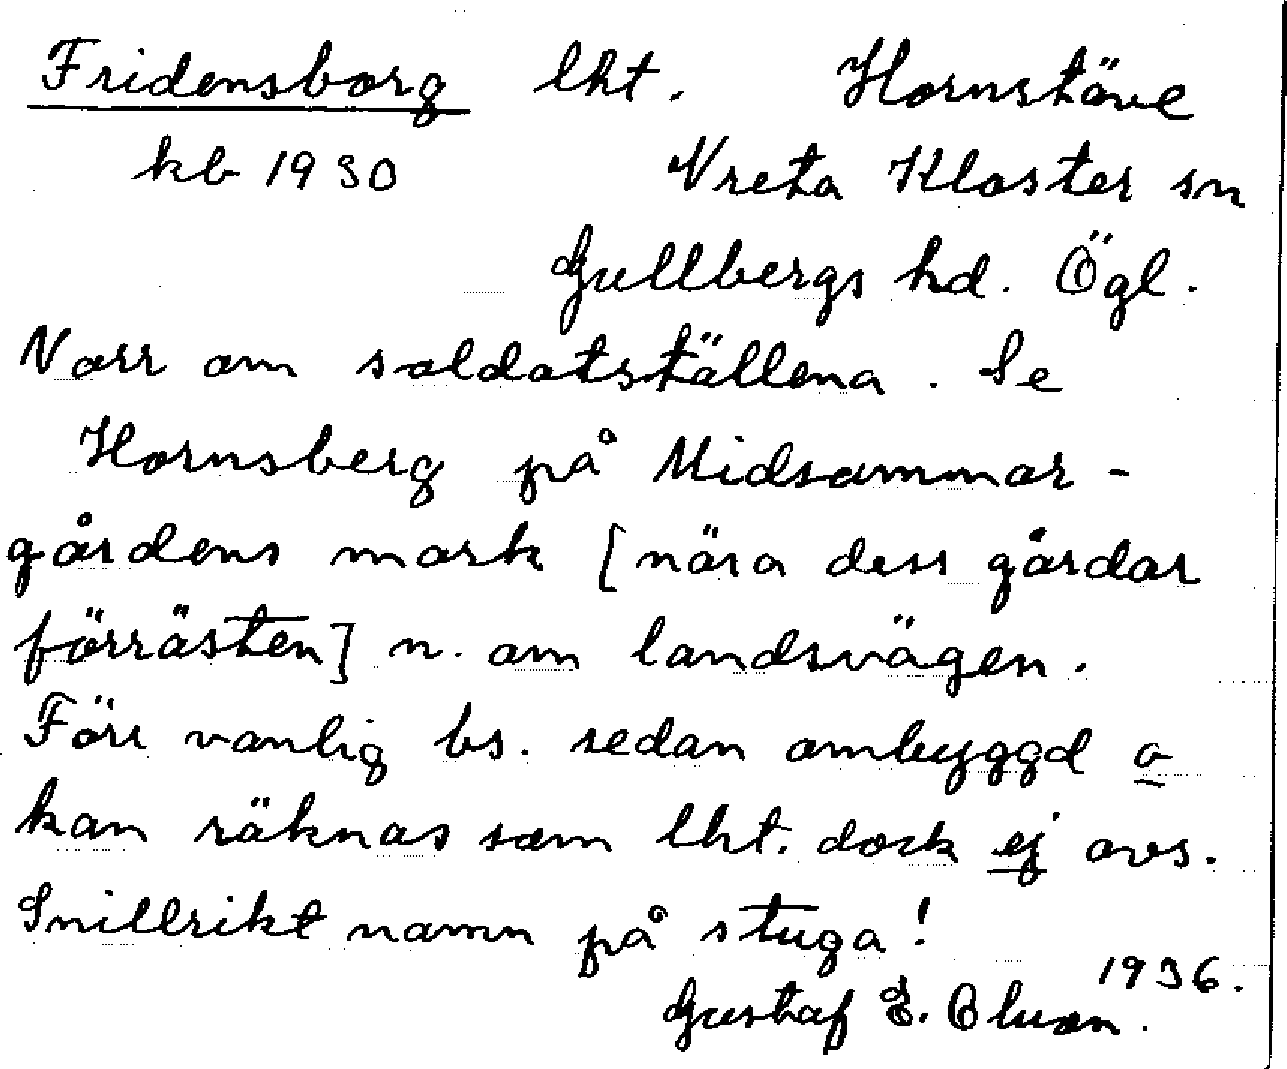 Fridensborg lht. Hornstäve
kb 1930 Vreta Kloster sn
Gullbergs hd. Ögl.
Norr om soldatställena. Se
Hornsberg på Midsommar-
gårdens mark [nära dess gårdar
förrästen] n. om landsvägen.
Förr vanlig bs. sedan ombyggd o
kan räknas som lht. dock ej avs.
Snillrikt namn på stuga!
1936.
Gustaf E. Olsson.